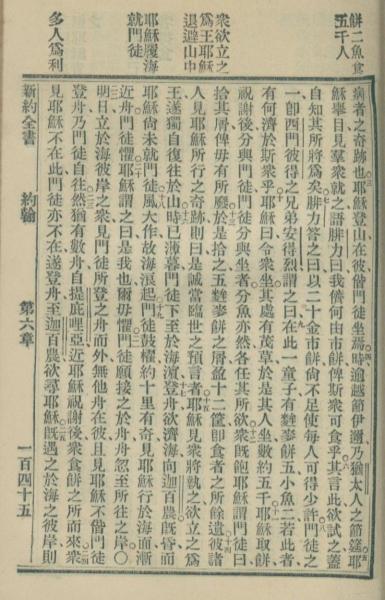 餅二魚食
五千人
衆欲立之
爲王耶穌
退避山中
耶穌履海
就門徒
多人爲利
病者之奇跡也耶穌登山在彼偕門徒坐焉時逾越節伊邇乃猶太人之節筵耶
穌舉目見羣衆就之語腓力曰我儕何由市餅俾斯衆可食乎其言此欲試之蓋
自知其所將爲矣腓力答之曰以二十金市餅尙不足使每人可得少許門徒之
一卽西門彼得之兄弟安得烈謂之曰在此一童子有麰麥餅五小魚二若此者
有何濟於斯衆乎耶穌曰令衆坐其處有茂草於是其人坐數約五千耶穌取餅
祝謝後分與門徒門徒分與坐者分魚亦然各任其所欲衆旣飽耶穌謂門徒曰
拾其屑俾毋有所廢於是拾之五麰麥餅之屑盈十二筐卽食者之所餘遺彼諸
人見耶穌所行之奇跡則曰是誠當臨世之預言者耶穌見衆將執之欲立之爲
王遂獨自復往於山時已薄暮門徒下至於海濱登舟欲濟海向迦百農旣昏而
耶穌尙未就門徒風大作故海浪起門徒鼓櫂約十里有奇見耶穌行於海而漸
近舟門徒懼耶穌謂之曰是我也爾毋懼門徒願接之於舟舟忽至所往之岸〇
明日立於海彼岸之衆見門徒所登之舟而外無他舟在彼且見耶穌不偕門徒
登舟乃門徒自往然猶有數舟自提庇哩亞近耶穌祝謝後衆食餅之所而來衆
見耶穌不在此門徒亦不在遂登舟至迦百農欲尋耶穌旣遇之於海之彼岸則
新約全書 約翰 第六章 一百四十五